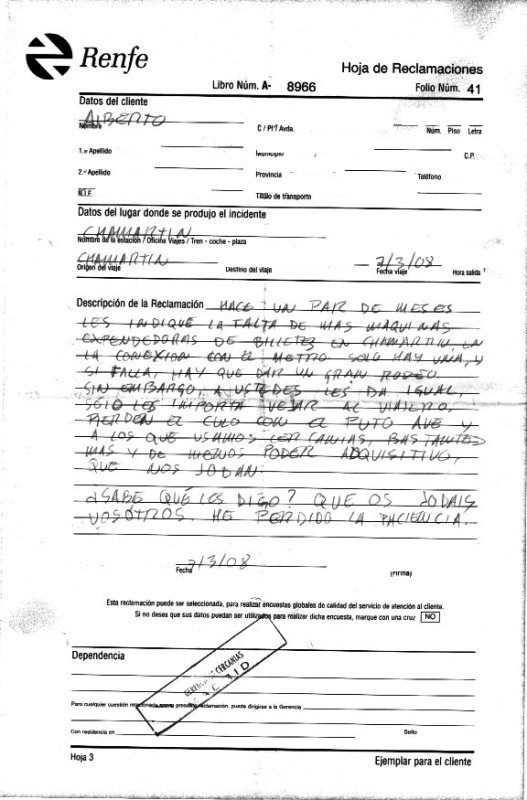 Renfe
Hoja de Reclamaciones
Libro Núm. A- 8966
Folio Núm. 41
Datos del cliente
ALBERTO
Nombre
C / Pl / Avda.
Núm. Piso Letra
1.er Apellido
Municipio
C.P.
2.º Apellido
Provincia
Teléfono
N.I.F.
Título de transporte
Datos del lugar donde se produjo el incidente
CHAMARTIN
Nombre de la estación / Oficina Viajes / Tren - coche - plaza
CHAMARTIN
7/3/08
Origen del viaje
Destino del viaje
Fecha viaje
Hora salida
Descripción de la Reclamación HACE UN PAR DE MESES
LES INDIQUÉ LA FALTA DE MAS MAQUINAS
EXPENDEDORAS DE BILLETES EN CHAMARTIN, EN
LA CONEXION CON EL METRO SOLO HAY UNA, Y
SI FALLA, HAY QUE DAR UN GRAN RODEO.
SIN EMBARGO, A USTEDES LES DA IGUAL,
SÓLO LES IMPORTA VEJAR AL VIAJERO.
PIERDEN EL CULO CON EL PUTO AVE Y
A LOS QUE USAMOS CERCANIAS, BASTANTES
MAS Y DE MENOS PODER ADQUISITIVO,
QUE NOS JODAN.
¿SABE QUÉ LES DIGO? QUE OS JODAIS
VOSOTROS. HE PERDIDO LA PACIENCIA.
7/3/08
Fecha
(Firma)
Esta reclamación puede ser seleccionada, para realizar encuestas globales de calidad del servicio de atención al cliente.
Si no desea que sus datos puedan ser utilizados para realizar dicha encuesta, marque con una cruz NO
Dependencia
GERENCIA DE CERCANIAS
Para cualquier cuestión relacionada con presente reclamación, puede dirigirse a la Gerencia
Con residencia en
Sello
Hoja 3
Ejemplar para el cliente